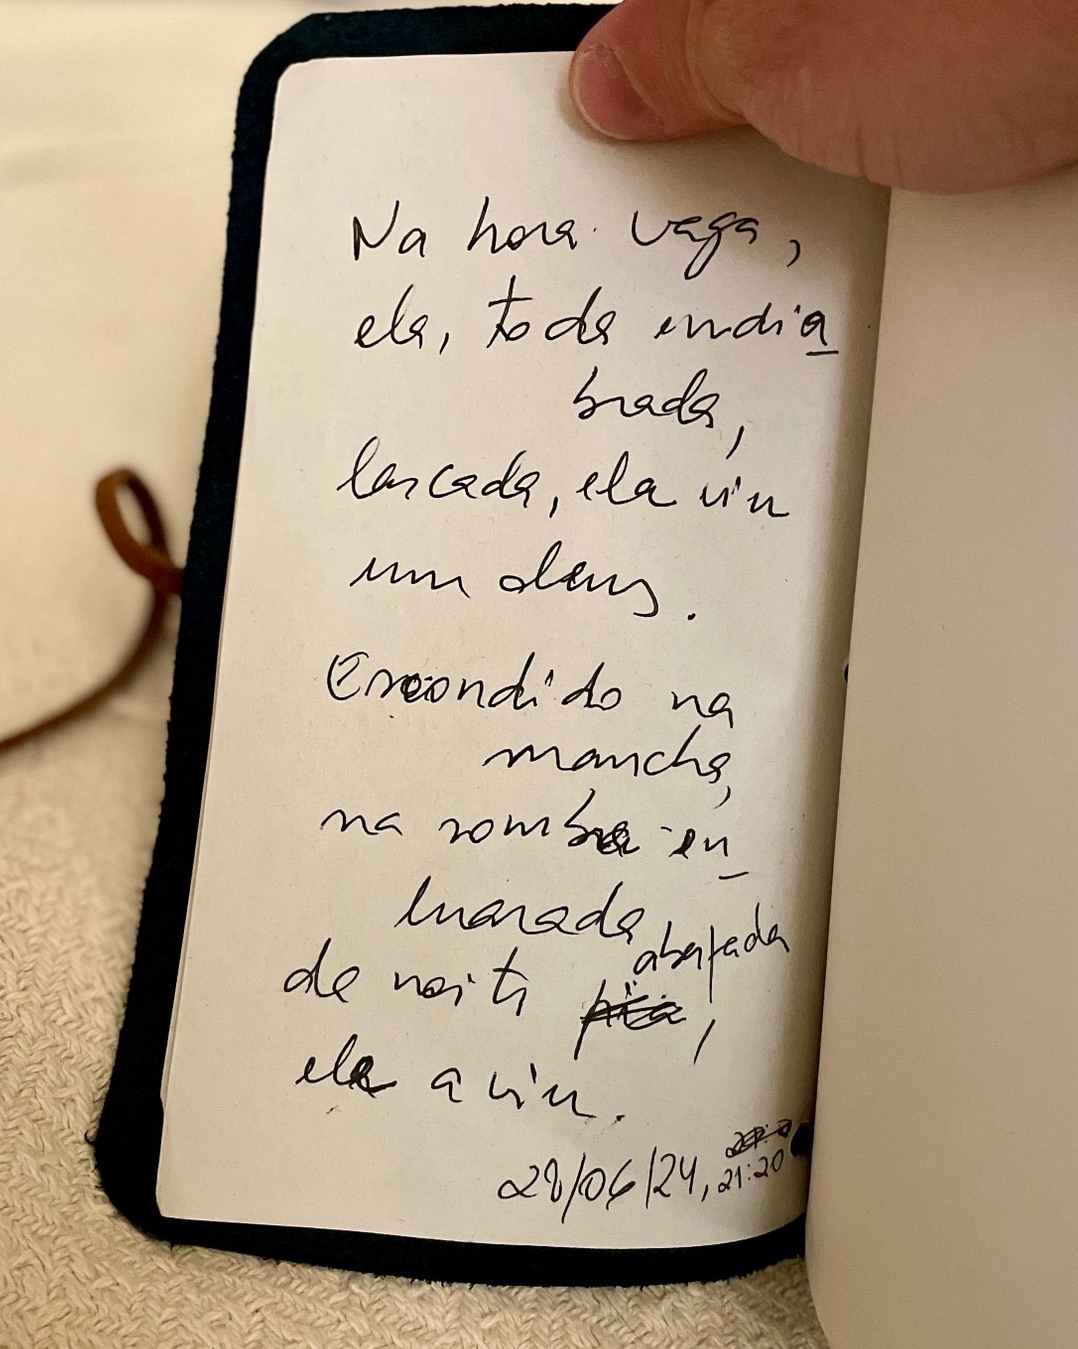 Na hora vaga,
ela, toda endia
brada,
lascada, ela viu
um deus.
Escondido na
mancha,
na sombra en
luarada
abafada
de noite
ele a viu.
28/06/24, 21:20